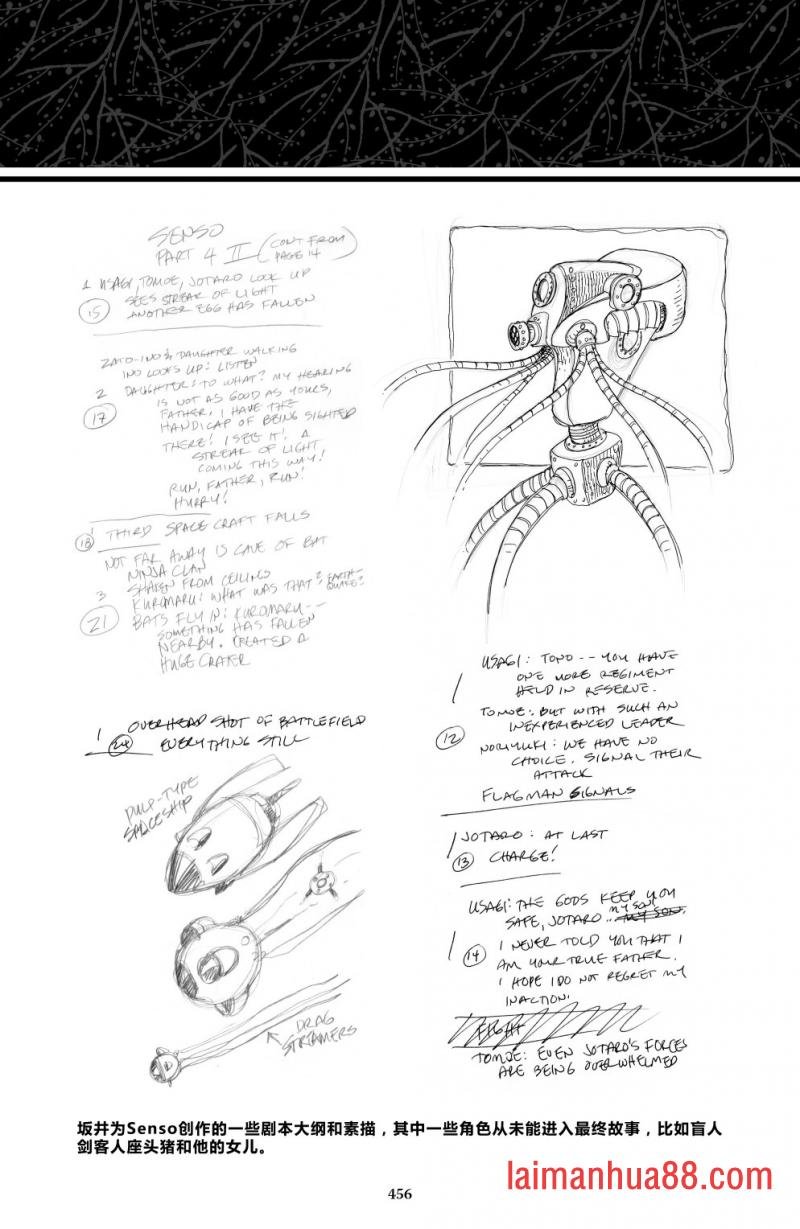 SENSO
PART 4 II (CONT FROM
PAGE 14)
1 USAGI, TOMOE, JOTARO LOOK UP
SEES STREAK OF LIGHT
15 ANOTHER EGG HAS FALLEN
ZATO-INO & DAUGHTER WALKING
INO LOOKS UP: LISTEN
2 DAUGHTER: TO WHAT? MY HEARING
IS NOT AS GOOD AS YOURS,
17 FATHER. I HAVE THE
HANDICAP OF BEING SIGHTED
THERE! I SEE IT! A
STREAK OF LIGHT
COMING THIS WAY!
RUN, FATHER, RUN!
HURRY!
18 THIRD SPACE CRAFT FALLS
NOT FAR AWAY IS CAVE OF BAT
NINJA CLAN
3 SHAKEN FROM CEILING
KUROMARU: WHAT WAS THAT? EARTH-
QUAKE?
21 BATS FLY IN: KUROMARU--
SOMETHING HAS FALLEN
NEARBY. CREATED A
HUGE CRATER
1 OVERHEAD SHOT OF BATTLEFIELD
EVERYTHING STILL
PULP-TYPE
SPACESHIP
DRAG
STREAMERS
USAGI: TONO -- YOU HAVE
1 ONE MORE REGIMENT
HELD IN RESERVE.
TOMOE: BUT WITH SUCH AN
12 INEXPERIENCED LEADER
NORIYUKI: WE HAVE NO
CHOICE. SIGNAL THEIR
ATTACK
FLAGMAN SIGNALS
1 JOTARO: AT LAST
13 CHARGE!
USAGI: THE GODS KEEP YOU
SAFE, JOTARO... MY SON
1 14 I NEVER TOLD YOU THAT I
AM YOUR TRUE FATHER.
I HOPE I DO NOT REGRET MY
INACTION.
FIGHT
TOMOE: EVEN JOTARO'S FORCES
ARE BEING OVERWHELMED
坂井为Senso创作的一些剧本大纲和素描，其中一些角色从未能进入最终故事，比如盲人
剑客人座头猪和他的女儿。
laimanhua88.com
456